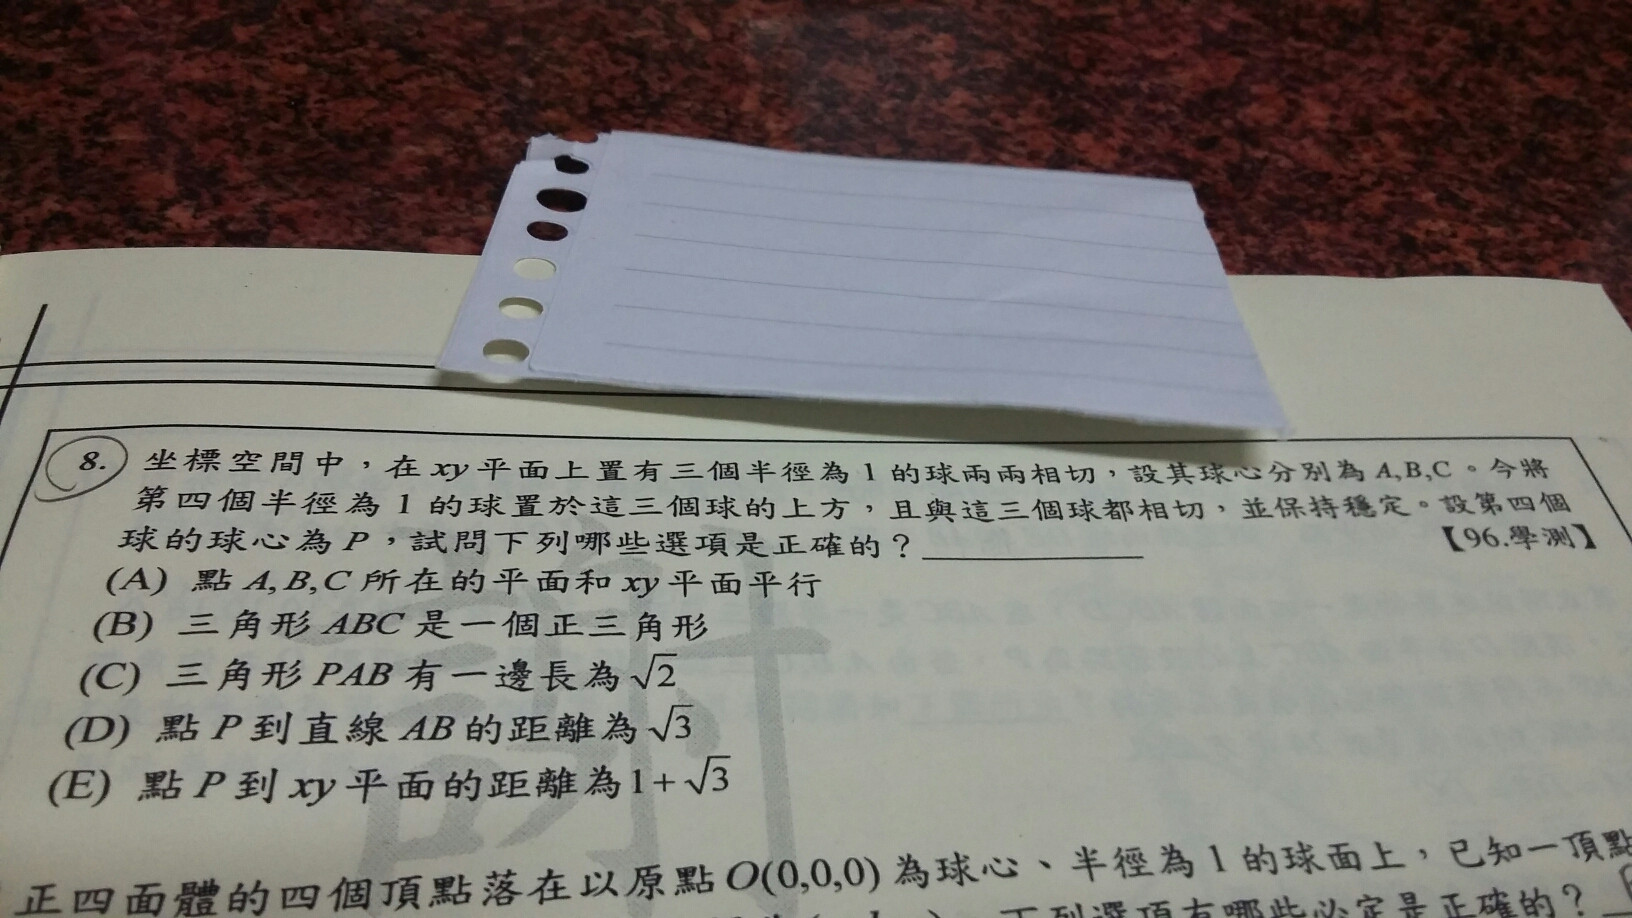 8. 坐標空間中，在 xy 平面上置有三個半徑為 1 的球兩兩相切，設其球心分別為 A,B,C。今將
第四個半徑為 1 的球置於這三個球的上方，且與這三個球都相切，並保持穩定。設第四個
球的球心為 P，試問下列哪些選項是正確的？__________ 【96.學測】
(A) 點 A,B,C 所在的平面和 xy 平面平行
(B) 三角形 ABC 是一個正三角形
(C) 三角形 PAB 有一邊長為 √2
(D) 點 P 到直線 AB 的距離為 √3
(E) 點 P 到 xy 平面的距離為 1+√3
正四面體的四個頂點落在以原點 O(0,0,0) 為球心、半徑為 1 的球面上，已知一頂點
下列選項有哪些必定是正確的？
謝